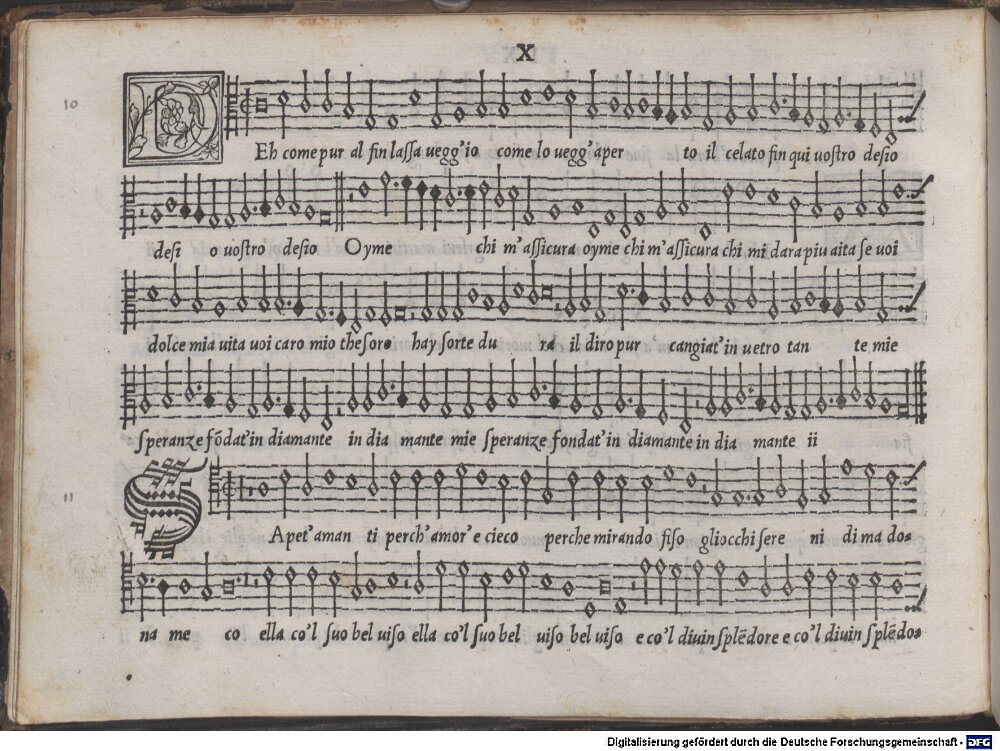 X
10
D
Eh come pur al fin lassa uegg'io come lo uegg'aper to il celato fin qui uostro desio
desi o uostro desio Oyme chi m'assicura oyme chi m'assicura chi mi dara piu aita se uoi
dolce mia uita uoi caro mio thesoro hay sorte du ra il diro pur cangiat'in uetro tan te mie
speranze fōdat'in diamante in dia mante mie speranze fondat'in diamante in dia mante ii
11
S
Apet'aman ti perch'amor'e cieco perche mirando fiso gliocchi sere ni di mado-
na me co ella co'l suo bel uiso ella co'l suo bel uiso bel uiso e co'l diuin splēdore e co'l diuin splēdo-
Digitalisierung gefördert durch die Deutsche Forschungsgemeinschaft - DFG